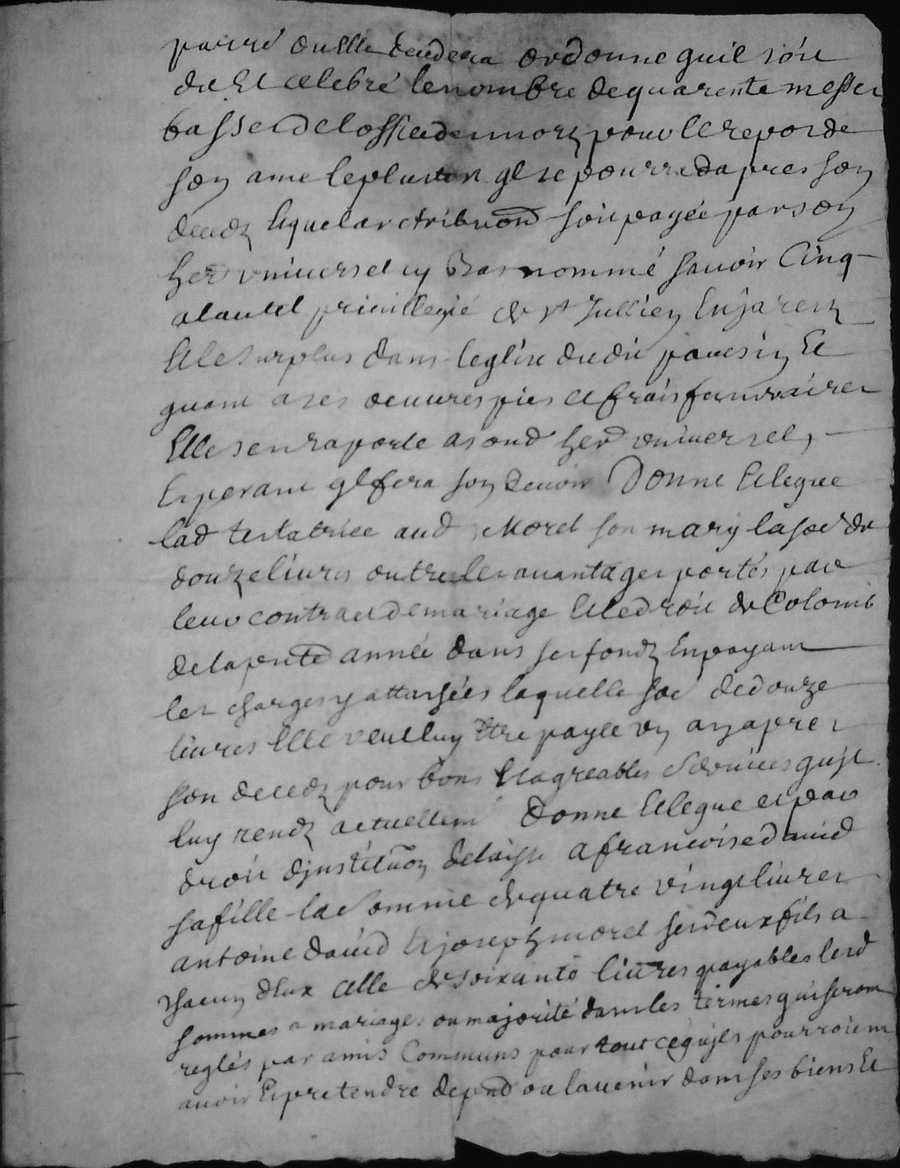 parré ou Elle decedera ordonne quil soit
dit Et celebré le nombre de quarente messes
basses de loffice des mortz pour le repos de
son ame le plustost qlse pourra dapres son
decedz Laquelle retribuon soit payée par son
herer universel cy bas nommé savoir Cinq
alautel privillegié de st Jullien
Et le surplus dans leglise dudit pouesin Et
quant a ses oeuvres pies et frais funeraires
Elle sen raporte a sond herer universel,
Esperant ql fera son devoir Donne Et legue
lad testatrice aud Morel son mary la soe de
douze livres outre les avantages portés par
leur contract de mariage Et le droit de Colome
de la pnte année dans ses fondz En payant
les charges y attachées laquelle soe de douze
livres Elle veut luy Etre payée un an apres
son decedz pour bons Et agreables services quil
luy rendz actuellemt Donne Et legue et par
droit djnstituon delaisse a francoise david
sa fille la somme de quatre vingt livres
antoine david Et joseph morel ses deux fils a
chacun dEux Celle de soixante livres payables lesd
sommes a mariages ou majorité dans les termes qui seront
reglés par amis Communs pour tout ce quils pourroient
avoir Et pretendre de pnt ou a lavenir dans ses biens Et